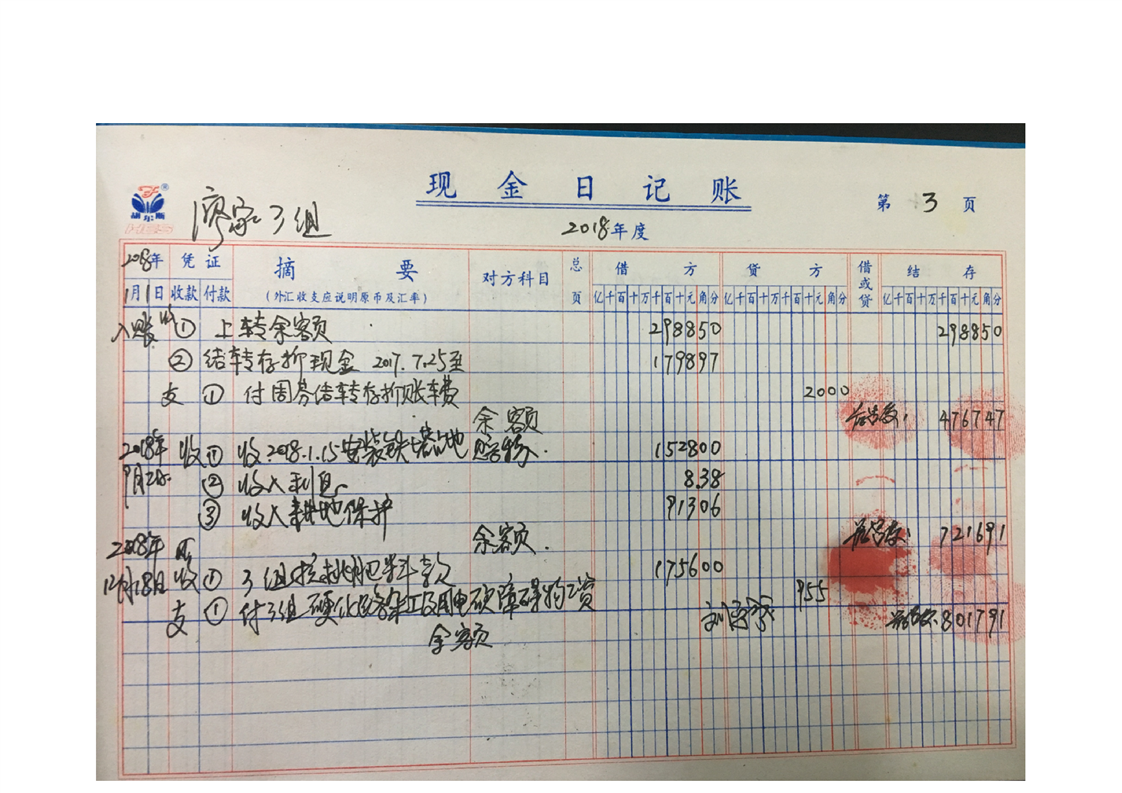 现金日记账
第 3 页
廖家3组
2018年度
2018年 凭证 摘要 对方科目 总页 借方 贷方 借或贷 结存
1月1日 收款 付款 (外汇收支应说明原币及汇率) 亿千百十万千百十元角分 亿千百十万千百十元角分 亿千百十万千百十元角分
入账 收 ① 上转余额 298850 298850
② 结转存折现金 2017.7.25至 179897
支 ① 付周芬结转存折账车费 2000
余额 476747
2018年 收 ① 收2018.1.15安装铁塔占地赔 152800
9月 ② 收入利息 8.38
③ 收入耕地保护 91306
余额. 721691
2018年
12月18日 收 ① 3组 肥料款 175600
支 ① 付3组硬化 障碍 工资 955
余额 801791